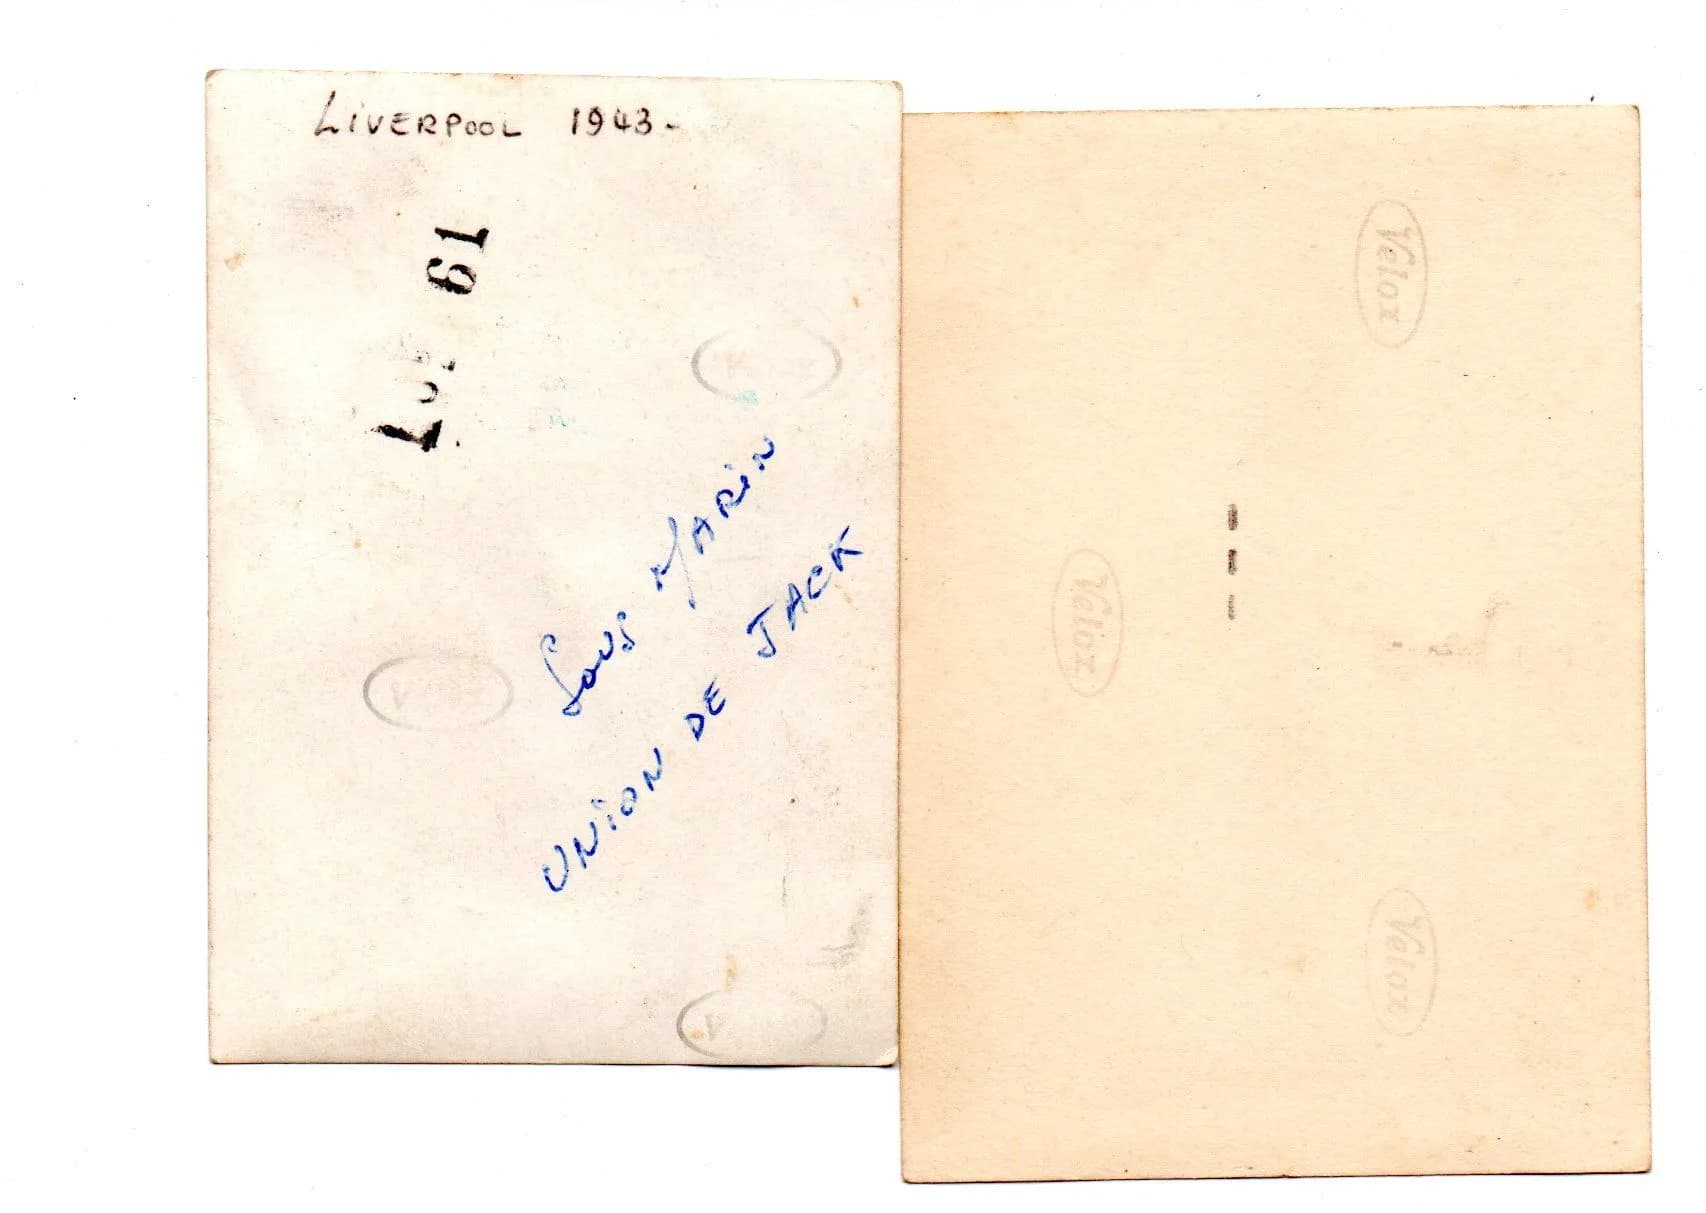 LIVERPOOL 1943-
61
Sous MARIN
UNION DE JACK
Velox
Velox
Velox